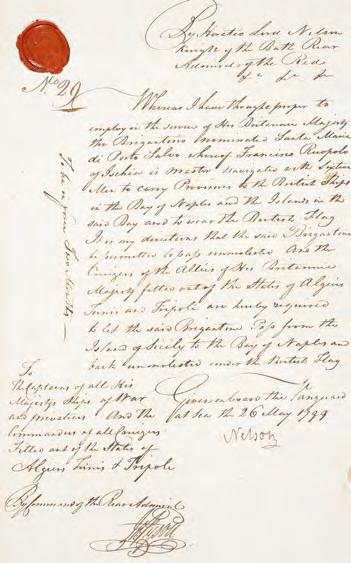 By Horatio Lord Nelson
Knight of the Bath Rear
Admiral of the Red
&c &c &c
No 29
Whereas I have thought proper to
employ in the service of His Britannic Majesty
the Brigantine nominated Santa Maria
di Porto Salvo whereof Francisco
of Ischia is Master navigated with Sixteen
Men to carry Provisions to the British Ships
in the Bay of Naples and the Islands in the
said Bay and to wear the British Flag
It is my directions that the said Brigantine
be permitted to pass unmolested And the
Cruizers of the Allies of His Britannic
Majesty fitted out of the States of Algiers
Tunis and Tripole are hereby required
to let the said Brigantine Pass from the
Island of Sicily to the Bay of Naples and
back unmolested under the British Flag
To be in force Two Months
Given on board the Vanguard
at Sea the 26 May 1799
Nelson
To
The Captains of all His
Majestys Ships of War
and privateers And the
Commanders of all Cruizers
Fitted out of the States of
Algiers Tunis & Tripole
By Command of the Rear Admiral